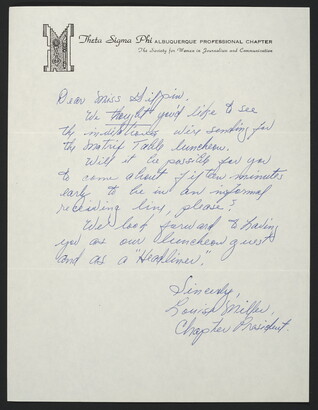 Theta Sigma Phi ALBUQUERQUE PROFESSIONAL CHAPTER
The Society for Women in Journalism and Communication
Dear Miss
We thought you'd like to see
the invitations we're sending for
the Matrix Table luncheon.
Will it be possible for you
to come about fifteen minutes
early to be in an informal
receiving line, please?
We look forward to having
you as our luncheon guest
and as a "Headliner."
Sincerely,
Louise Miller,
Chapter President.